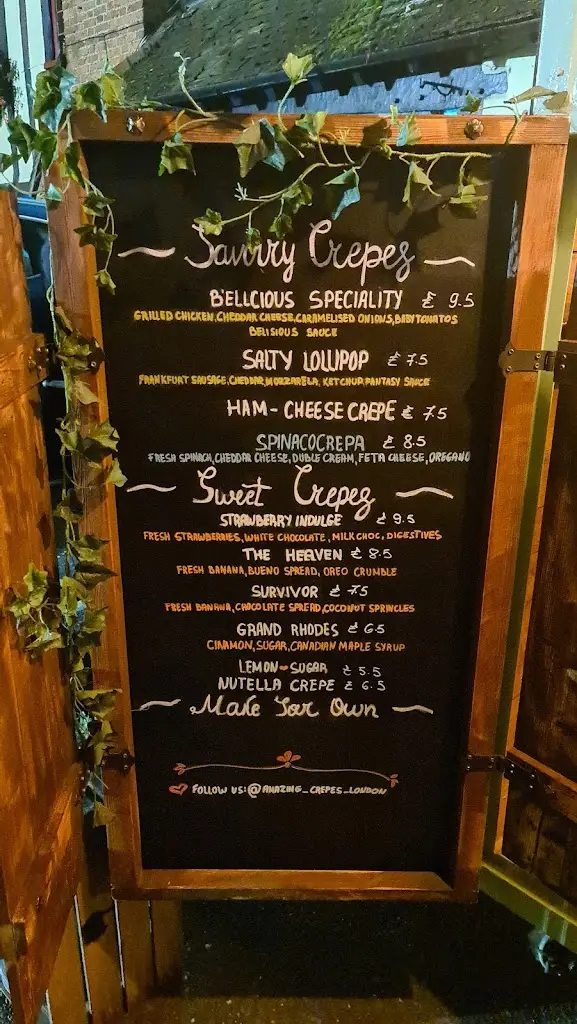 Savory Crepes
B'ELLCIOUS SPECIALITY £ 9.5
GRILLED CHICKEN, CHEDDAR CHEESE, CARAMELISED ONIONS, BABY TOMATOS
BELISIOUS SAUCE
SALTY LOLLIPOP £ 7.5
FRANKFURT SAUSAGE, CHEDDAR, MOZZARELA, KETCHUP, FANTASY SAUCE
HAM-CHEESE CREPE £ 7.5
SPINACOCREPA £ 8.5
FRESH SPINACH, CHEDDAR CHEESE, DUBLE CREAM, FETA CHEESE, OREGANO
Sweet Crepes
STRAWBERRY INDULGE £ 9.5
FRESH STRAWBERRIES, WHITE CHOCOLATE, MILK CHOC, DIGESTIVES
THE HEAVEN £ 8.5
FRESH BANANA, BUENO SPREAD, OREO CRUMBLE
SURVIVOR £ 7.5
FRESH BANANA, CHOCOLATE SPREAD, COCONUT SPRINCLES
GRAND RHODES £ 6.5
CINAMON, SUGAR, CANADIAN MAPLE SYRUP
LEMON-SUGAR £ 5.5
NUTELLA CREPE £ 6.5
Make Your Own
FOLLOW US: @AMAZING_CREPES_LONDON